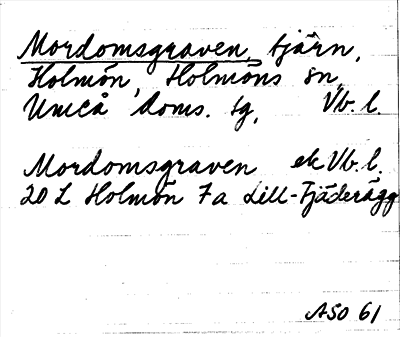 Mordomsgraven, tjärn,
Holmön, Holmöns sn,
Umeå doms. tg, Vb. l.
Mordomsgraven ek Vb. l.
20 L Holmön 7a Lill-Fjäderägg
ASO 61